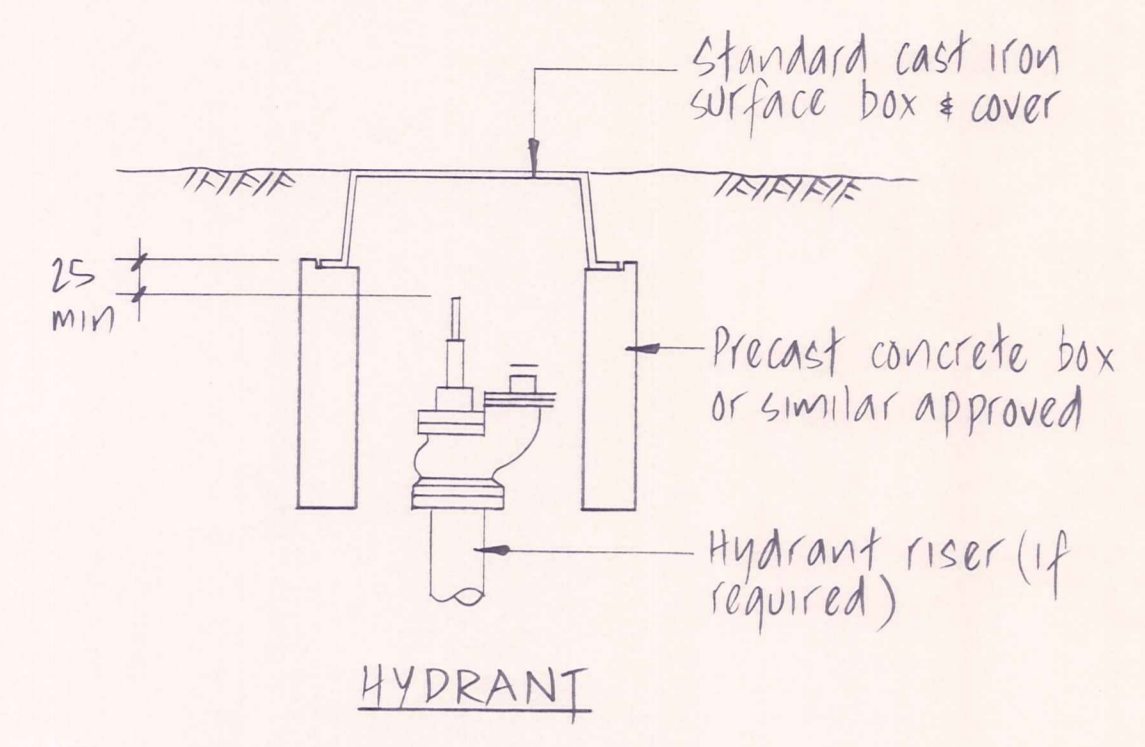 Standard cast iron
surface box & cover
25
min
Precast concrete box
or similar approved
Hydrant riser (if
required)
HYDRANT